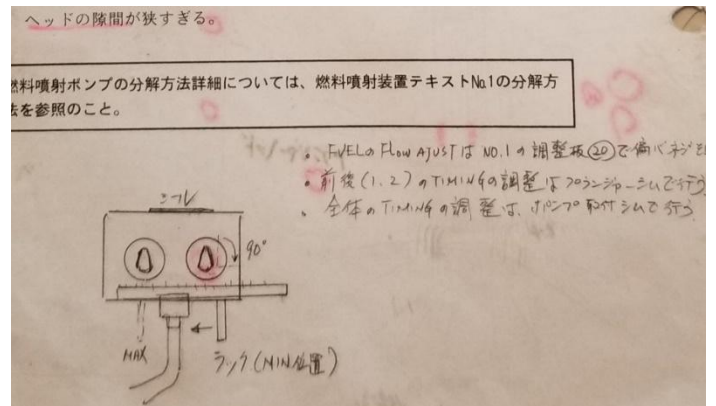 ヘッドの隙間が狭すぎる。
燃料噴射ポンプの分解方法詳細については、燃料噴射装置テキストNo.1の分解方
法を参照のこと。
・ FUELのFLOW AJUSTは NO.1の調整板⑳で偏バネジを
・ 前後(1.2)のTIMINGの調整はプランジャーシムで行う
・ 全体のTIMINGの調整は、ポンプ取付シムで行う
90°
MAX
ラック(MIN位置)